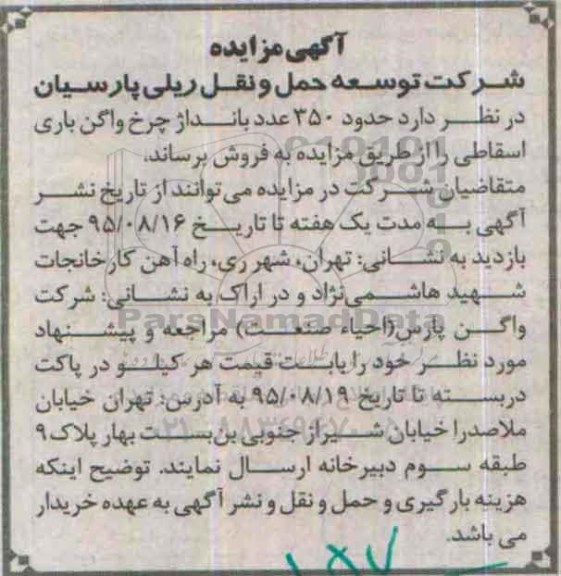 آگهی مزایده
شرکت توسعه حمل و نقل ریلی پارسیان
در نظر دارد حدود ۳۵۰ عدد بانداژ چرخ واگن باری
اسقاطی را از طریق مزایده به فروش برساند.
متقاضیان شرکت در مزایده می توانند از تاریخ نشر
آگهی به مدت یک هفته تا تاریخ ۹۵/۰۸/۱۶ جهت
بازدید به نشانی: تهران، شهر ری، راه آهن کارخانجات
شهید هاشمی‌نژاد و در اراک به نشانی: شرکت
واگن پارس(احیاء صنعت) مراجعه و پیشنهاد
مورد نظر خود را بابت قیمت هر کیلو در پاکت
دربسته تا تاریخ ۹۵/۰۸/۱۹ به آدرس: تهران خیابان
ملاصدرا خیابان شیراز جنوبی بن‌بست بهار پلاک ۹
طبقه سوم دبیرخانه ارسال نمایند. توضیح اینکه
هزینه بارگیری و حمل و نقل و نشر آگهی به عهده خریدار
می باشد.
ParsNamadData